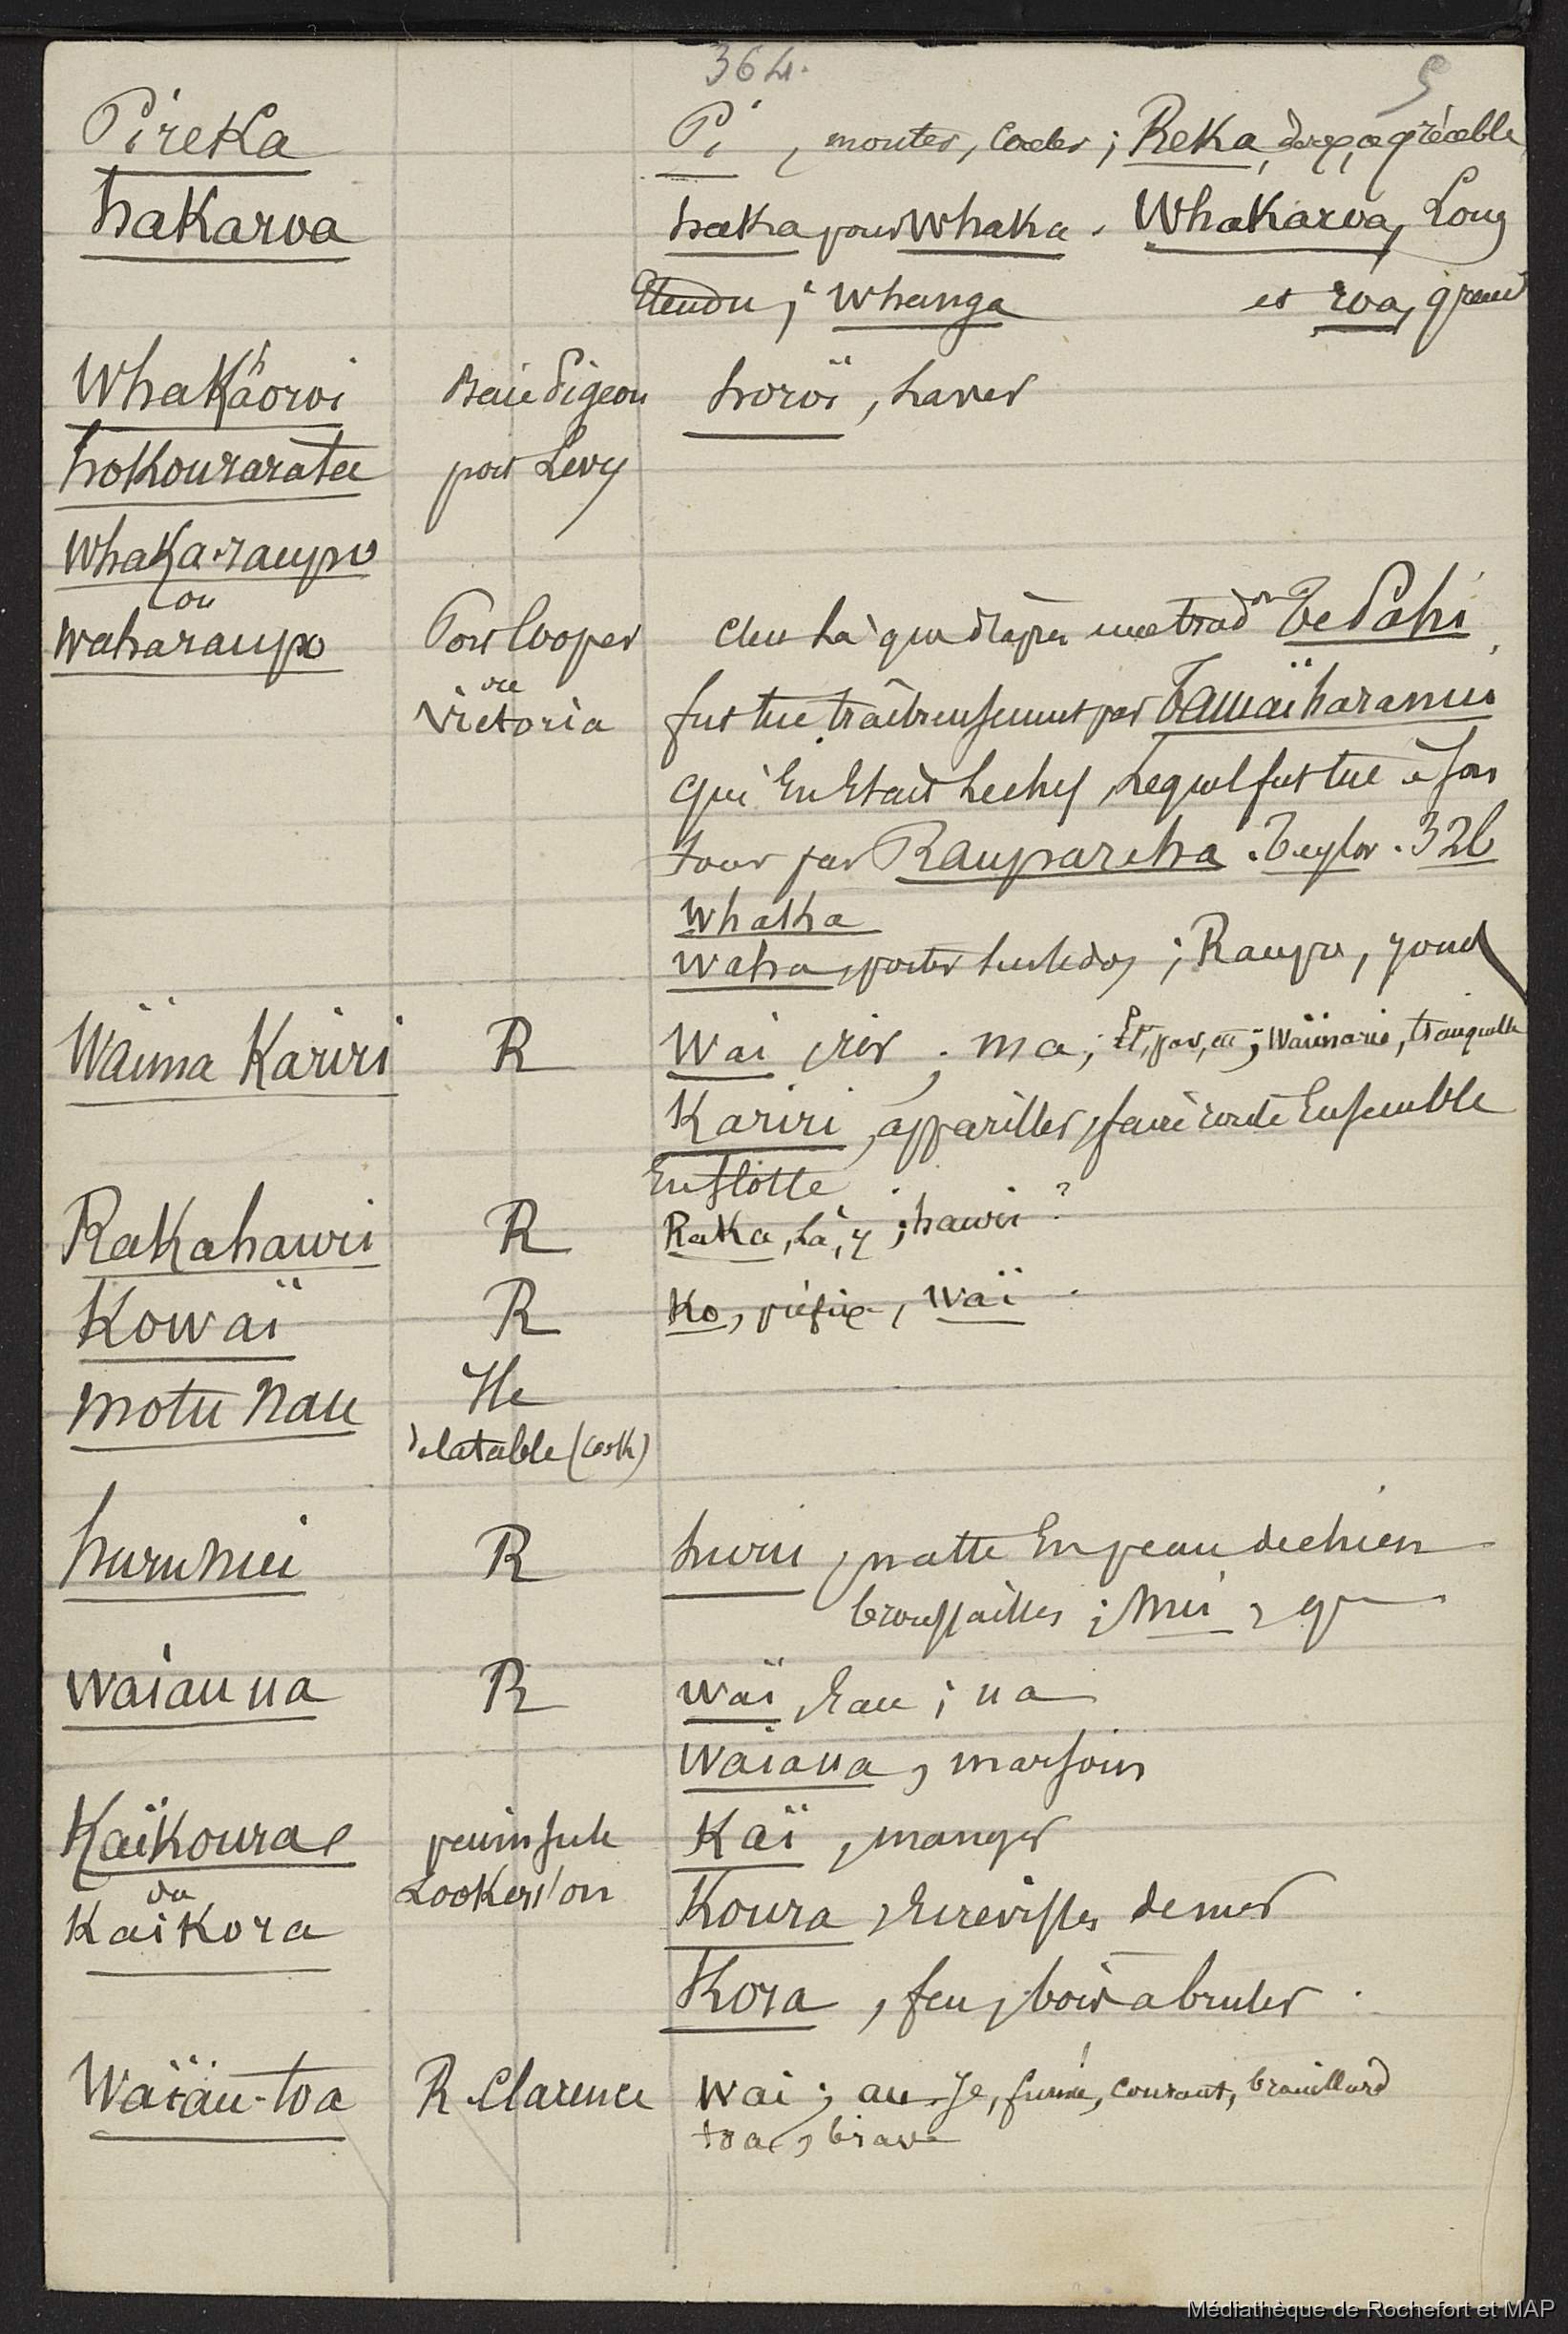 364.
5
Pireka Pi, monter, ; Reka, doux, agréable
hakaroa haka pour Whaka. Whakaroa, Long
Etendu; Whanga et roa, grand
Whakaoroi Baie Pigeon horoï, laver
hokouraratu port Levy
Whaka-raupo
ou
waharaupo Port Cooper C'est là que d'après une trad on Te Pahi
ou
Victoria fut tué traîtreusement par Tamaïharanui
qui en etait le chef, lequel fut tué à son
tour par Rauparaha. Taylor. 326
Whaka
Waha, porter sur le dos; Raupo, jonc
Waïma Kariri R Wai, ; ma; Et, par, ; Waimarie, tranquille
Kariri, appariller, faire route Ensemble
En flotte.
Rakahawii R Raka, là, y; hawii?
Kowaï R Ko, préfixe, Waï.
motu nau Ile
de la table (Cook)
hurunui R huru, natte En peau de chien
broussailles; Nui, gd
Waiau ua R Waï, Eau; ua
Waiaua, marsoin
Kaïkoura péninsule Kaï, manger
ou
Kaikora Lookers'on Koura, Ecrevisses de mer
Kora, feu, bois à bruler.
Waïau-toa R Clarence Wai; au Je, fumée, courant, brouillard
toa, brave
Médiathèque de Rochefort et MAP